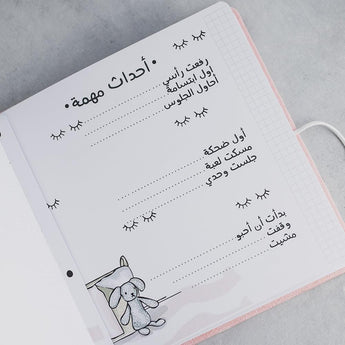 • أحداث مهمة •
رفعت رأسي
أول ابتسامة
أحاول الجلوس
أول ضحكة
مسكت لعبة
جلست وحدي
بدأت أن أحبو
وقفت
مشيت